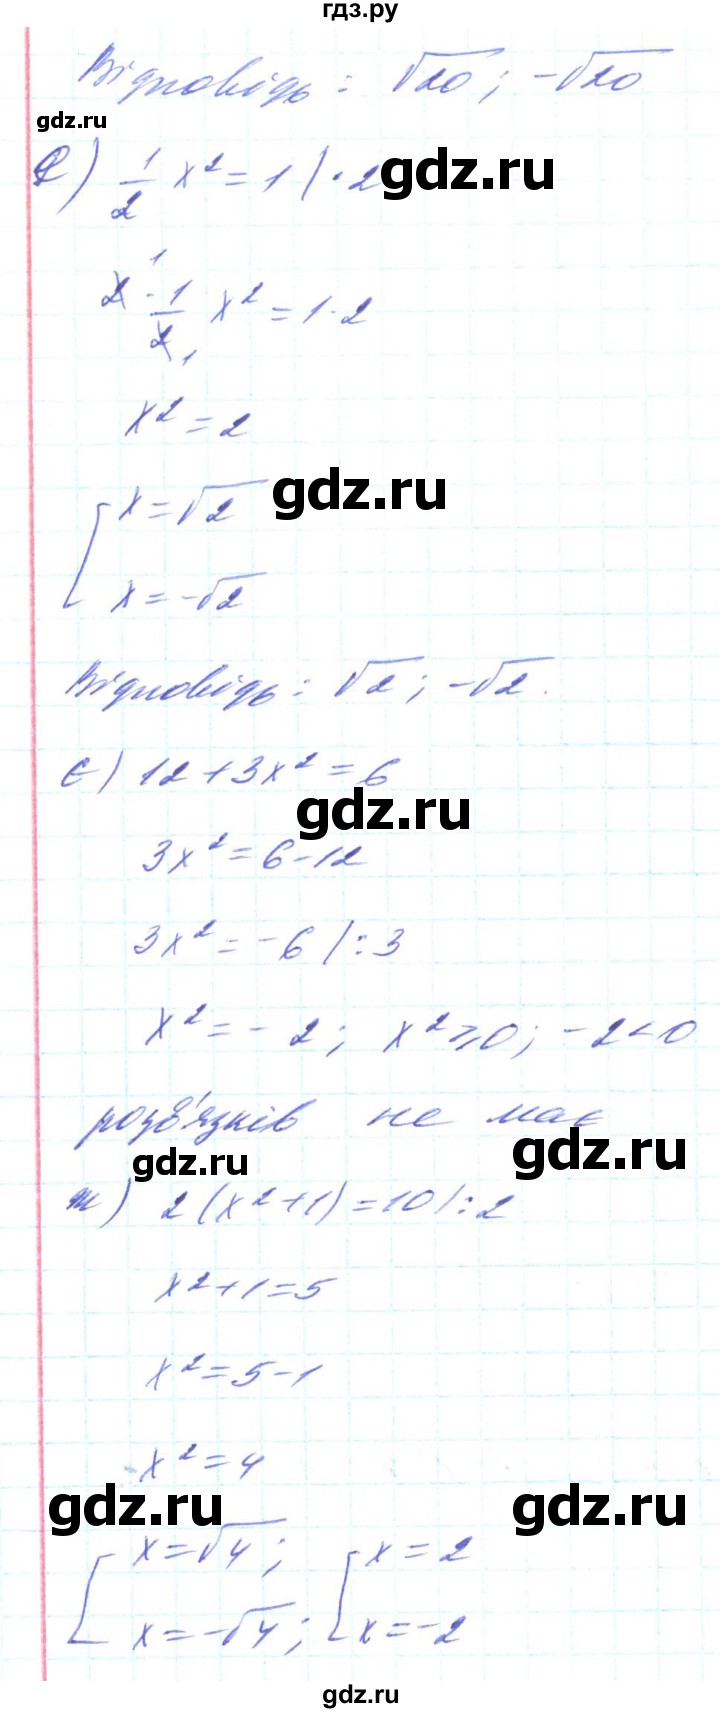 гдз.ру
Відповідь: √20; -√20
gdz.ru
е) 1/2 x² = 1 | · 2
gdz.ru
2 · 1/2 x² = 1 · 2
1
1
x² = 2
gdz.ru
x = √2
x = -√2
Відповідь: √2; -√2.
є) 12 + 3x² = 6
gdz.ru
3x² = 6 - 12
3x² = -6 | : 3
x² = -2; x² ≥ 0; -2 < 0
розв'язків не має
gdz.ru
gdz.ru
ж) 2(x² + 1) = 10 | : 2
x² + 1 = 5
x² = 5 - 1
x² = 4
gdz.ru
gdz.ru
x = √4; x = 2
x = -√4; x = -2
gdz.ru